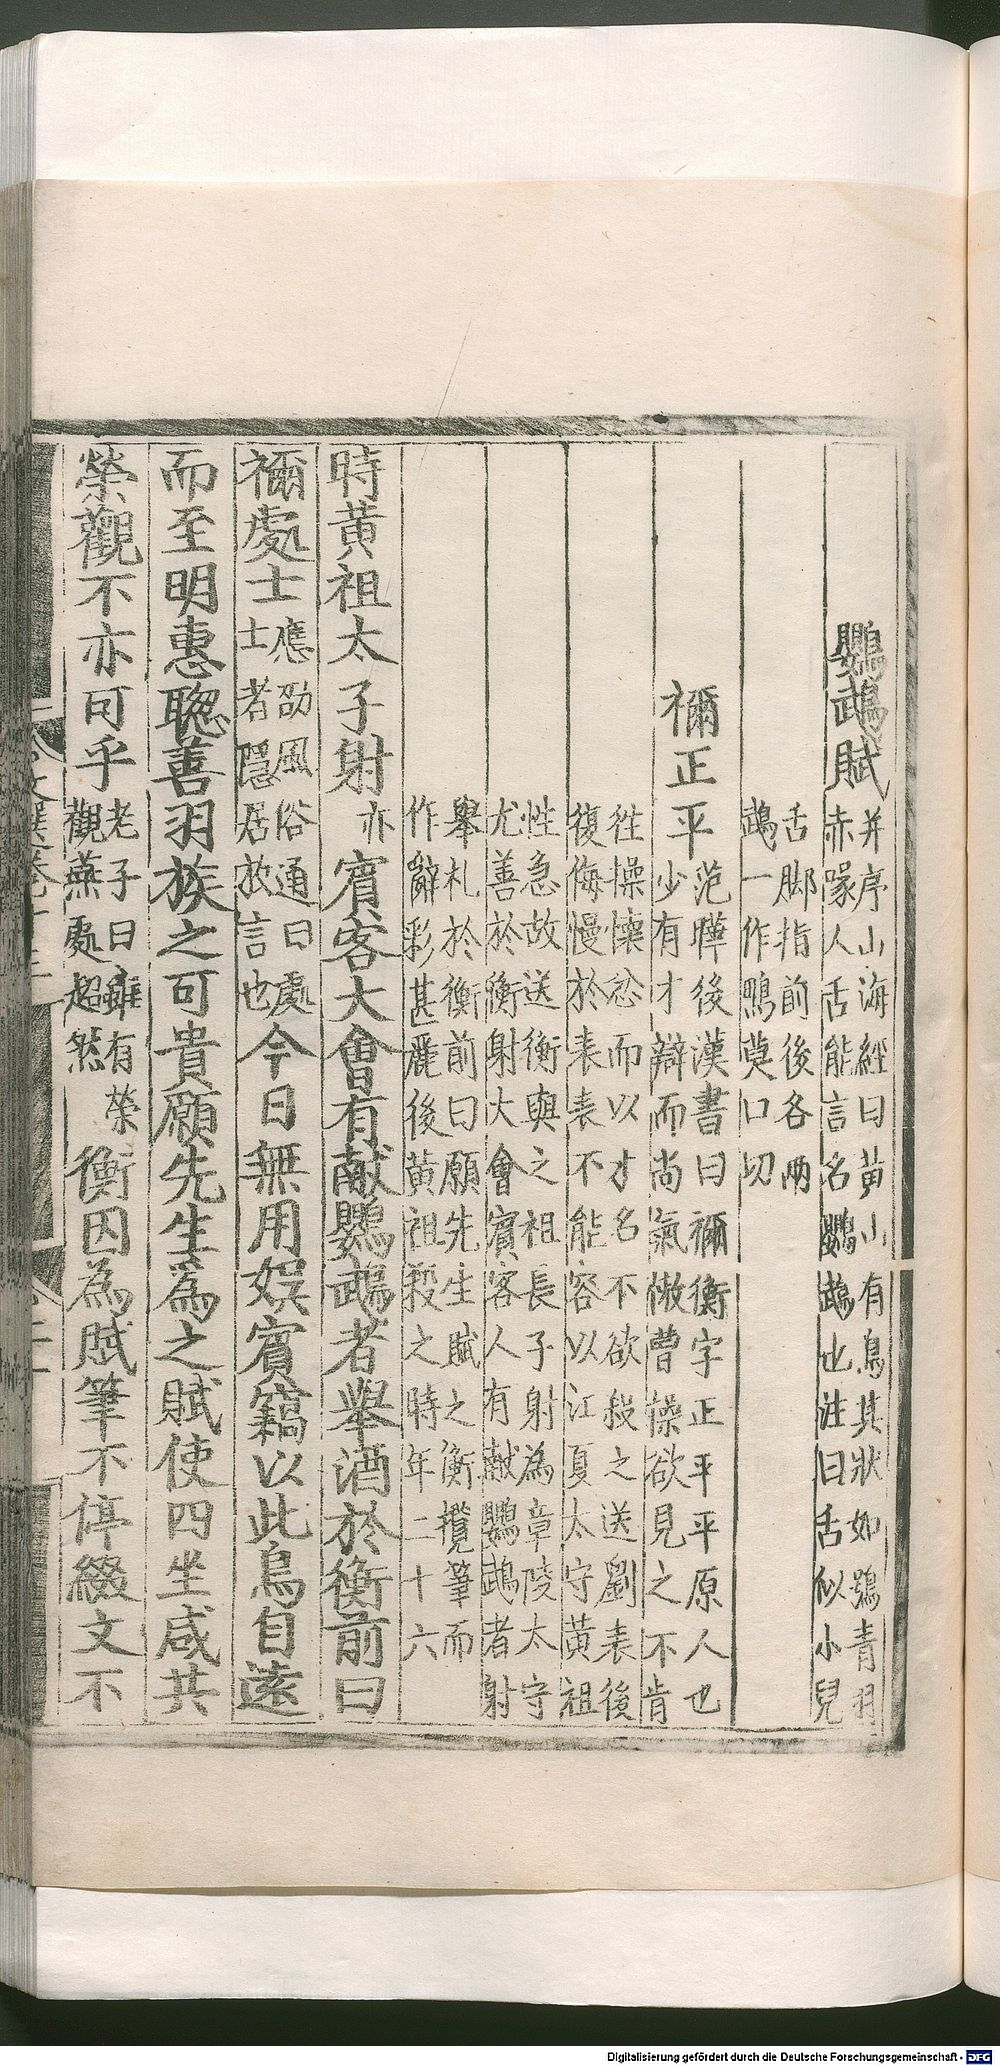 鸚䳇賦并序山海經曰黄山有鳥其狀如鴞青羽
赤喙人舌能言名鸚䳇也注曰舌似小兒
舌脚指前後各兩
䳇一作鵡莫口切
禰正平范曄後漢書曰禰衡字正平平原人也
少有才辯而尚氣慠曹操欲見之不肯
徃操懷忿而以才名不欲殺之送劉表後
復侮慢於表表不能容以江夏太守黄祖
性急故送衡與之祖長子射為章陵太守
尤善於衡射大會賓客人有献鸚䳇者射
舉札於衡前曰願先生賦之衡攬筆而
作辭彩甚麗後黄祖殺之時年二十六
時黄祖太子射亦賓客大會有献鸚䳇者舉酒於衡前曰
禰處士應劭風俗通曰處士者隱居放言也今日無用娱賓竊以此鳥自遠
而至明惠聦善羽族之可貴願先生為之賦使四坐咸共
榮觀不亦可乎老子曰雖有榮觀燕處超然衡因為賦筆不停綴文不
Digitalisierung gefördert durch die Deutsche Forschungsgemeinschaft - DFG